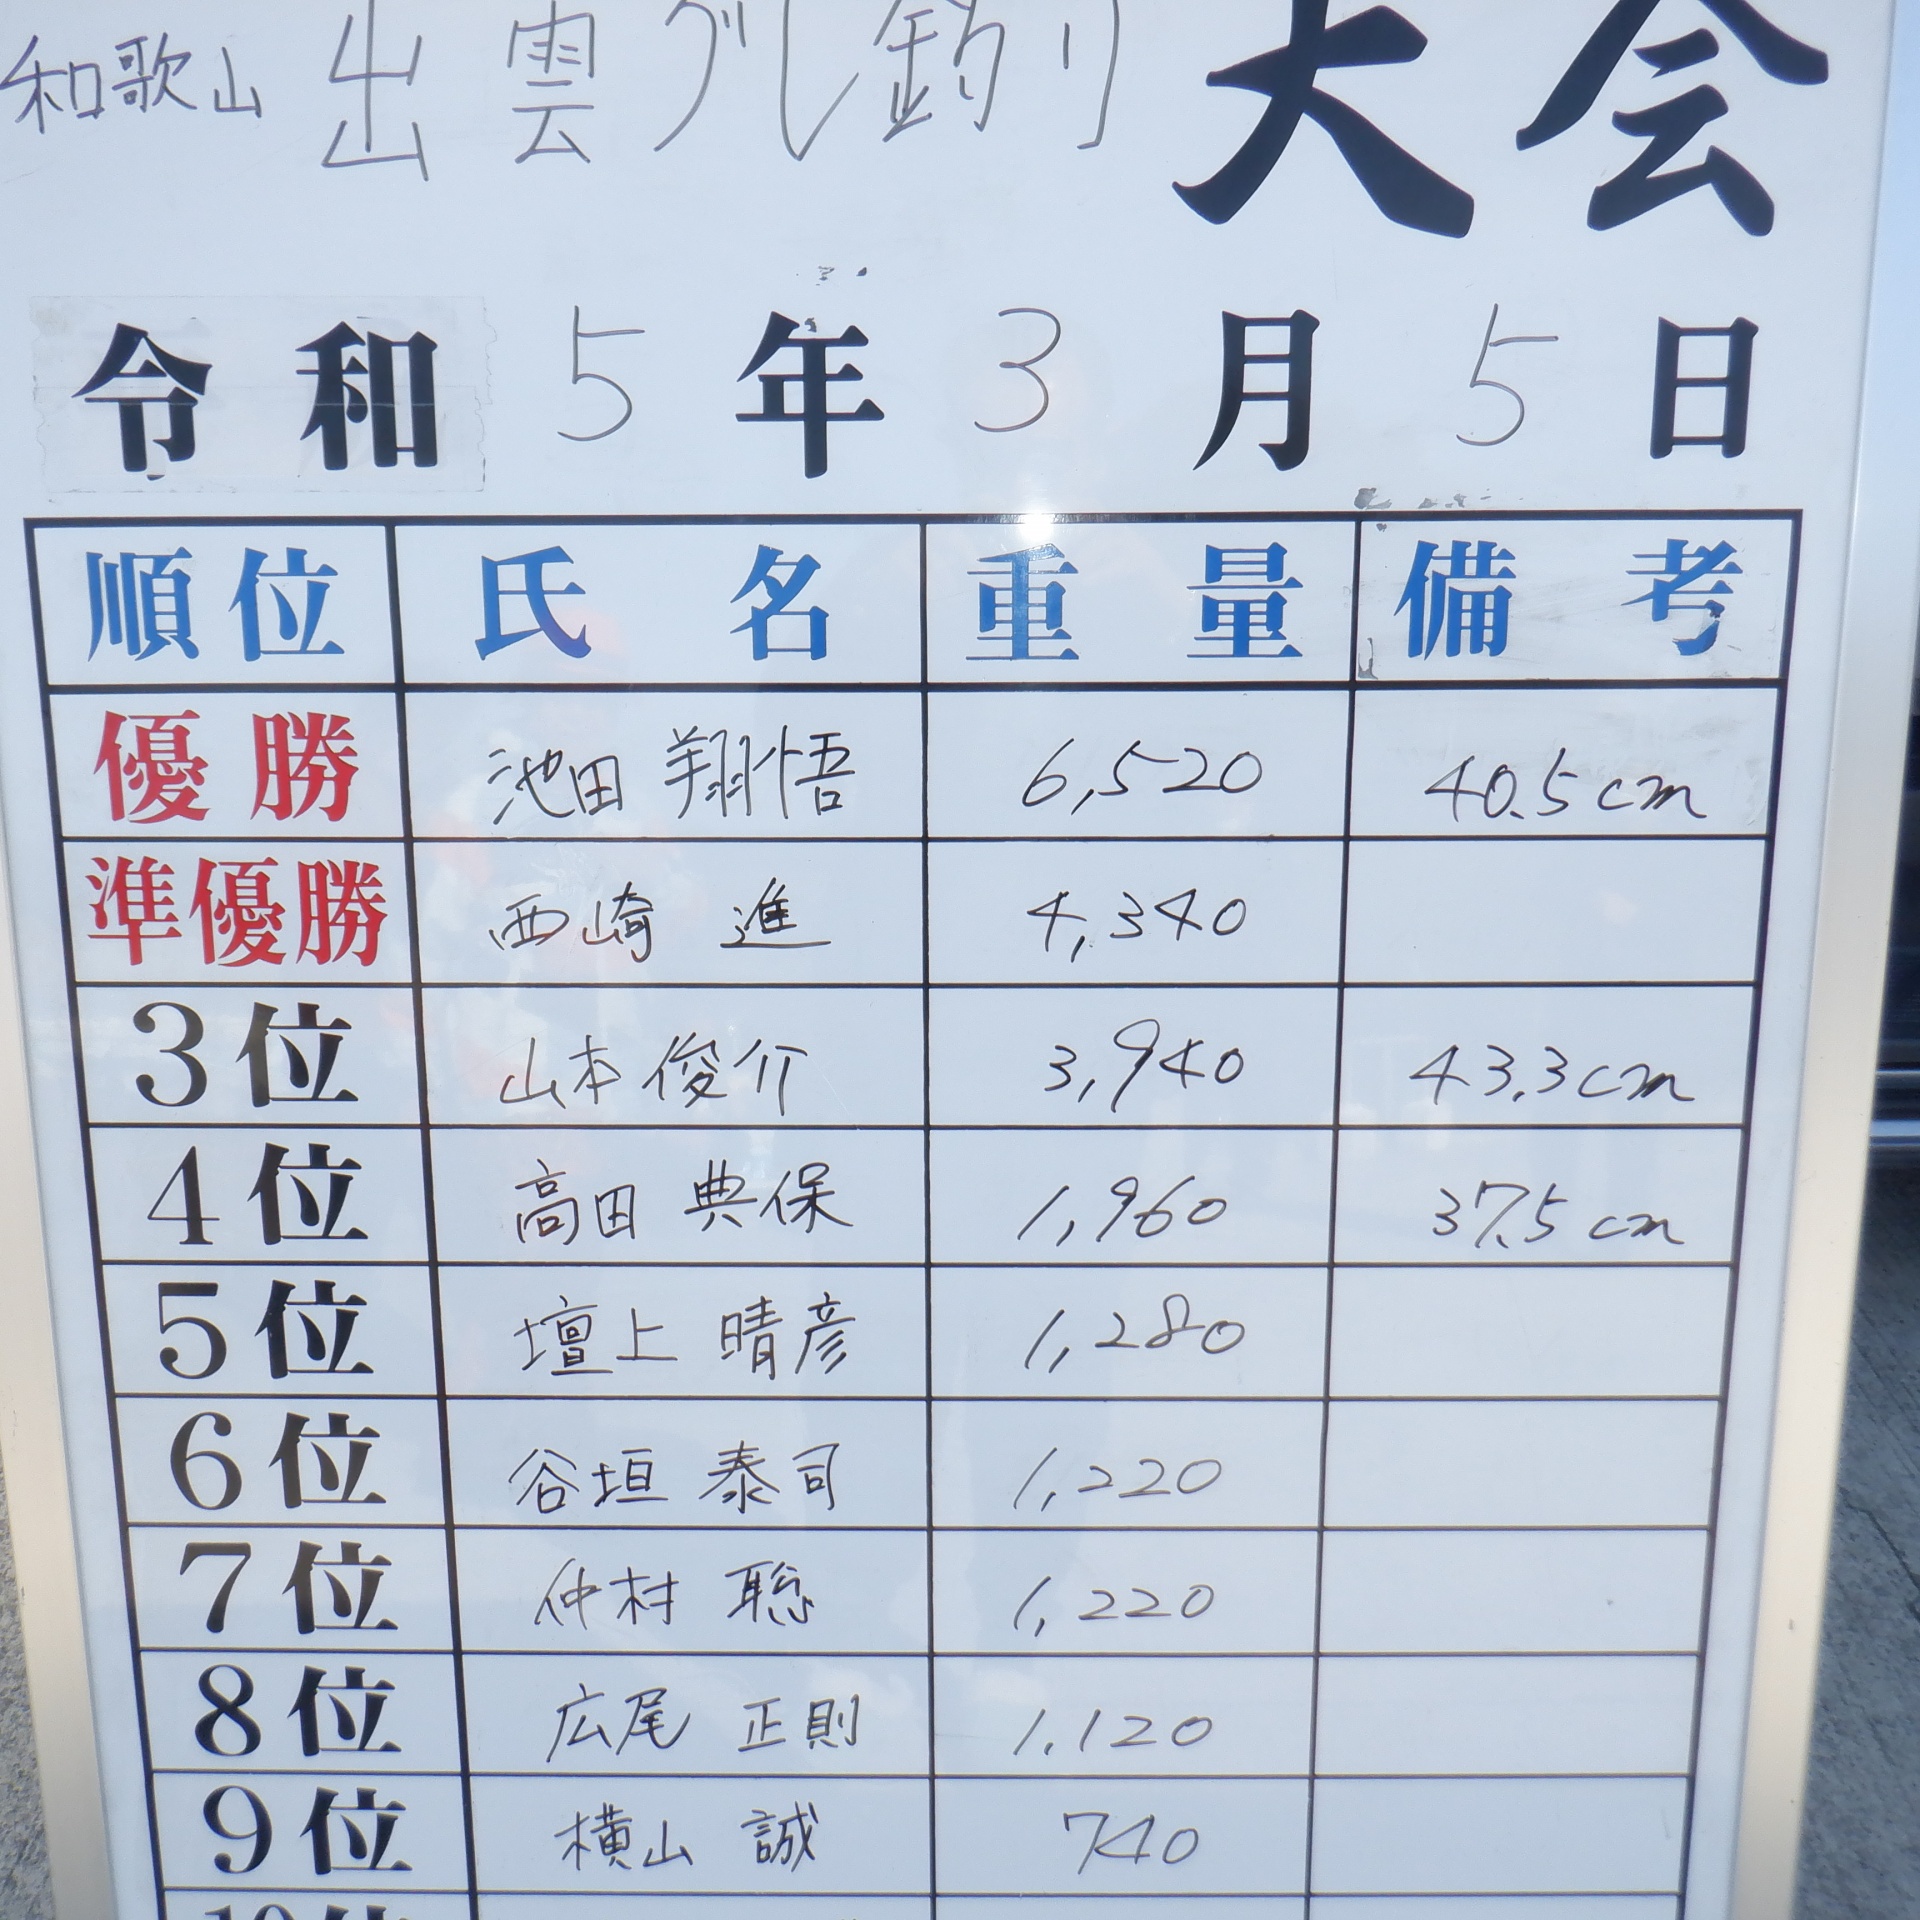 和歌山 出雲グレ釣り大会
令和5年3月5日
順位 氏名 重量 備考
優勝 池田 翔悟 6,520 40.5cm
準優勝 西崎 進 4,340
3位 山本俊介 3,940 43.3cm
4位 高田 典保 1,960 37.5cm
5位 壇上 晴彦 1,280
6位 谷垣 泰司 1,220
7位 仲村 聡 1,220
8位 広尾 正則 1,120
9位 横山 誠 740
10位